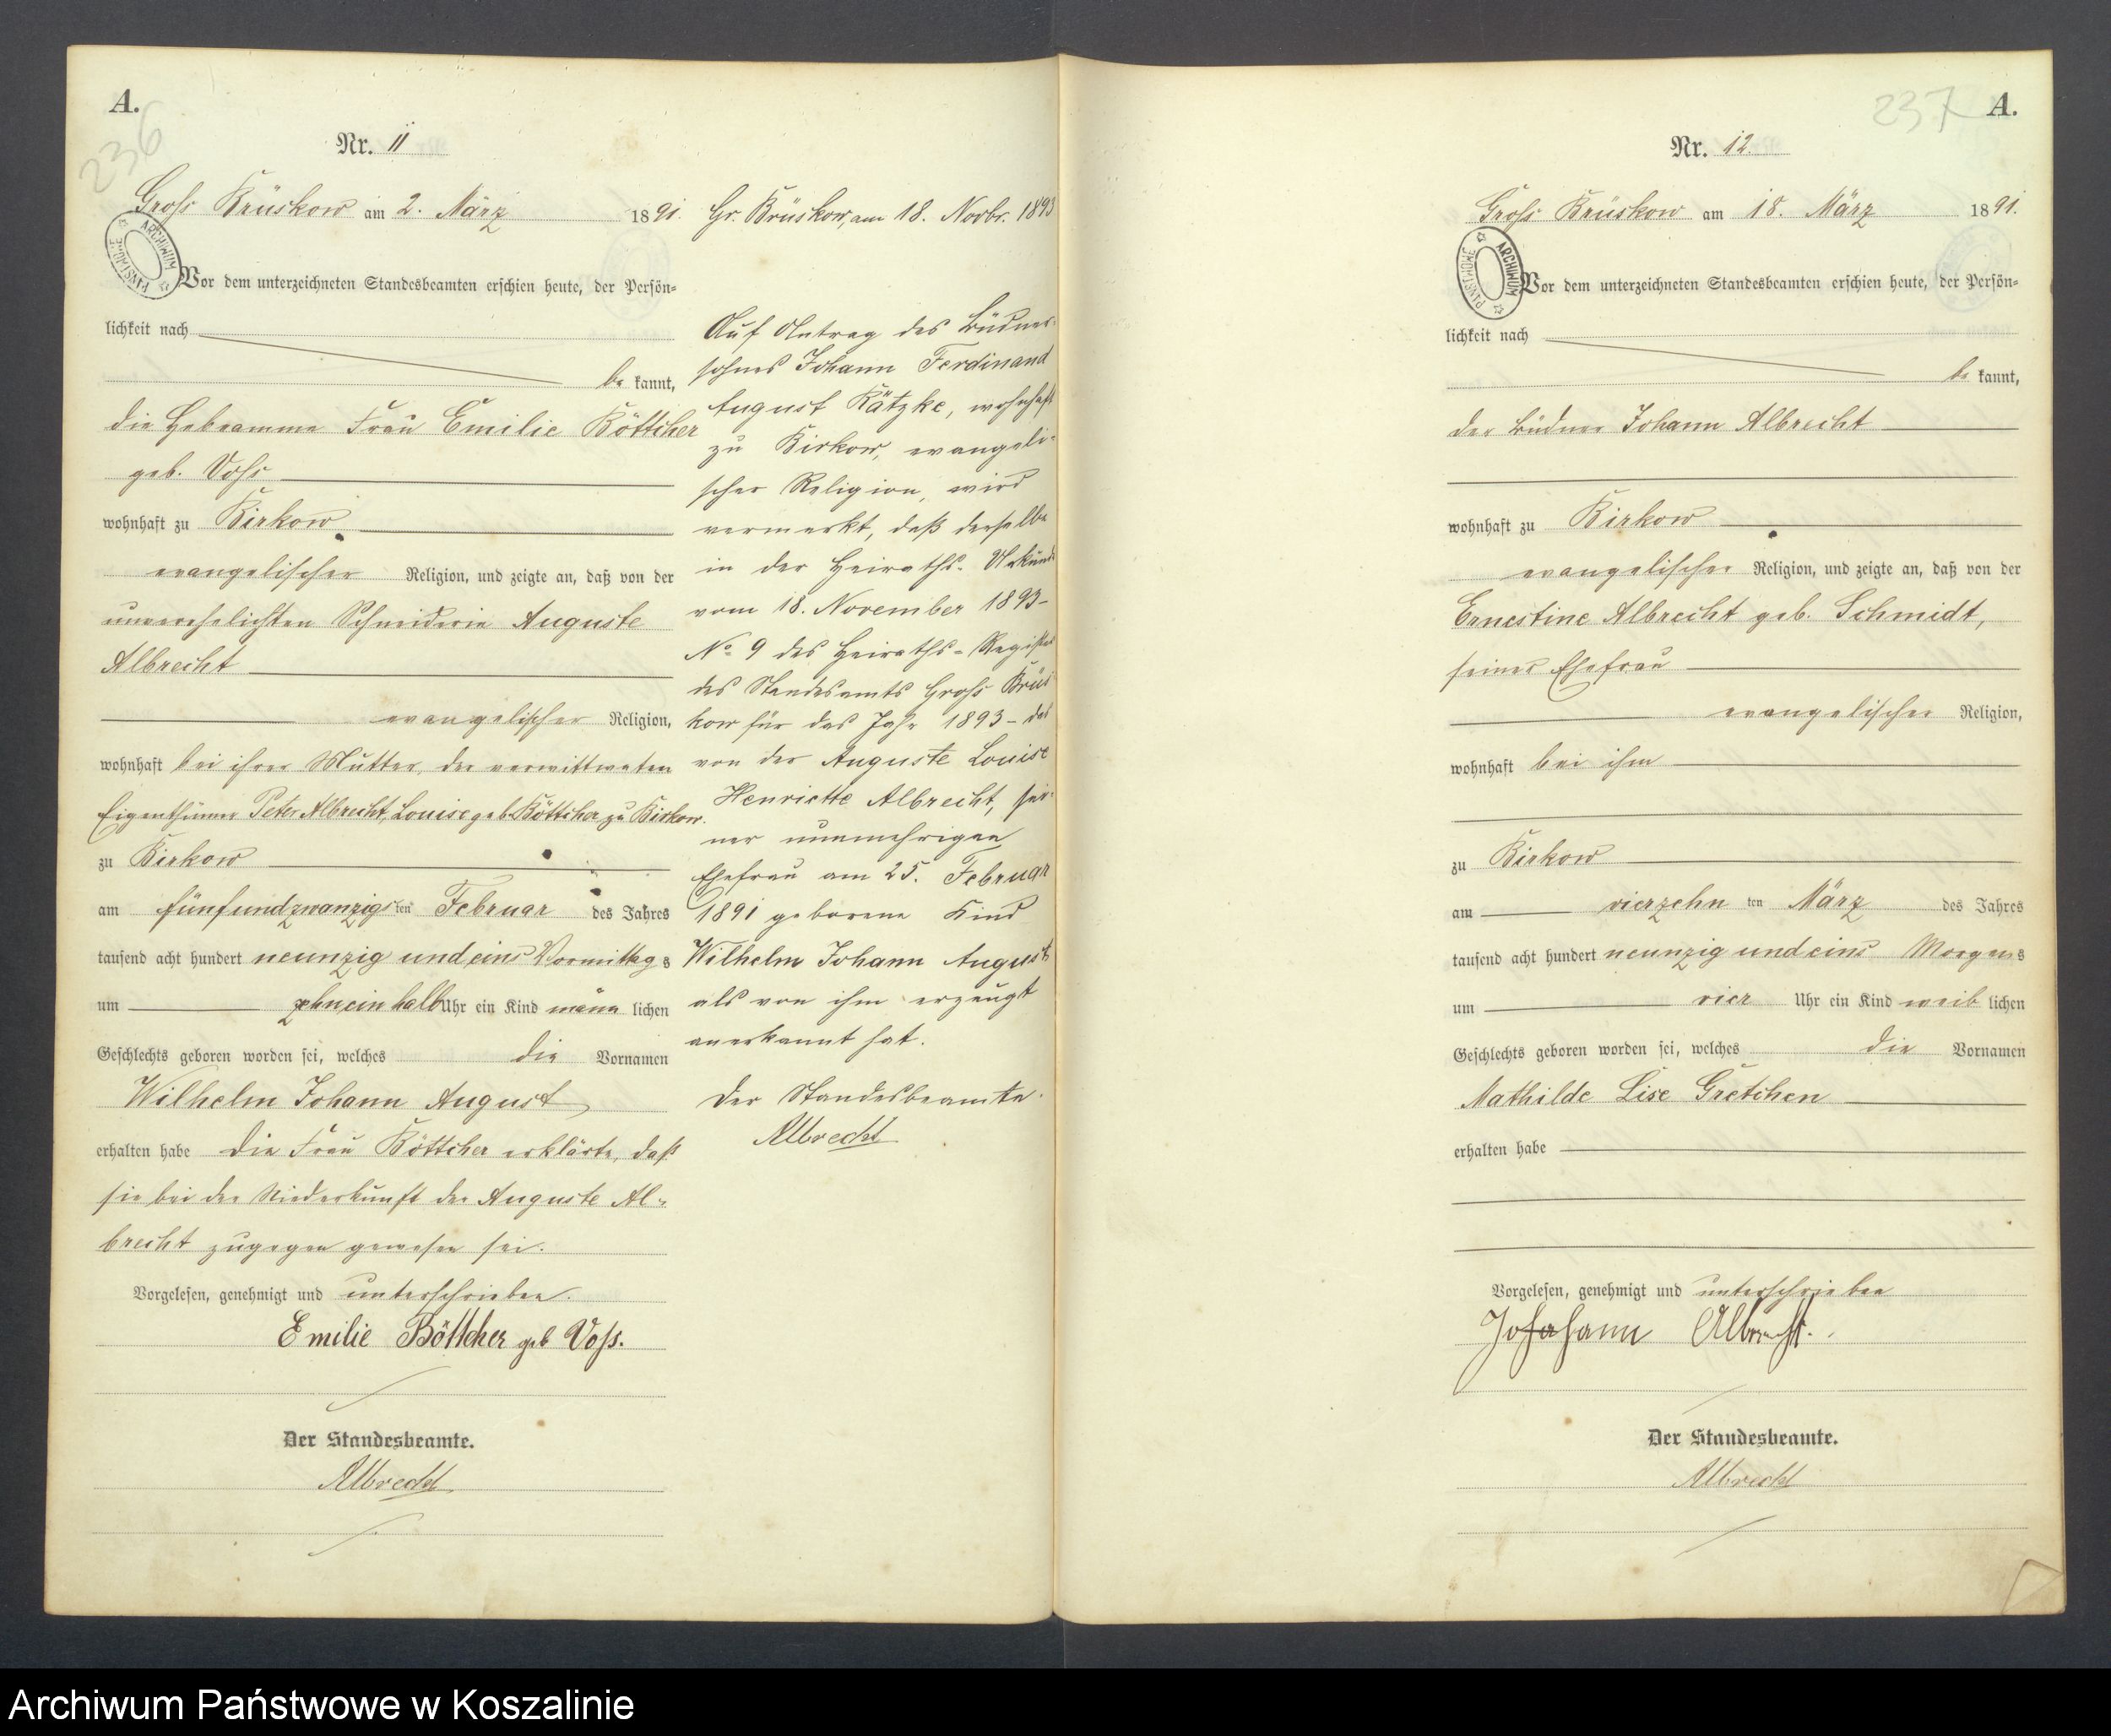 A.
236
Nr. 11
Gross Brüskow am 2. März 1891.
ARCHIWUM PAŃSTWOWE
Vor dem unterzeichneten Standesbeamten erschien heute, der Persön-
lichkeit nach
be kannt,
die Hebeamme Frau Emilie Böttcher
geb. Voss
wohnhaft zu Birkow
evangelischer Religion, und zeigte an, daß von der
unverehelichten Schneiderin Auguste
Albrecht
evangelischer Religion,
wohnhaft bei ihrer Mutter, der verwittweten
Eigenthümer Peter Albrecht, Louise geb. Böttcher zu Birkow.
zu Birkow
am fünfundzwanzigs ten Februar des Jahres
tausend acht hundert neunzig und eins Vormittag s
um zehn ein halb Uhr ein Kind männ lichen
Geschlechts geboren worden sei, welches die Vornamen
Wilhelm Johann August
erhalten habe Die Frau Böttcher erklärte, daß
sie bei der Niederkunft der Auguste Al-
brecht zugegen gewesen sei.
Vorgelesen, genehmigt und unterschrieben.
Emilie Böttcher geb Voss.
Der Standesbeamte.
Albrecht
Gr. Brüskow, am 18. Novbr. 1893
Auf Antrag des Büdner-
sohnes Johann Ferdinand
August Kätzke, wohnhaft
zu Birkow, evangeli-
scher Religion, wird
vermerkt, daß derselbe
in der Heiraths-Urkunde
vom 18. November 1893 -
No 9 des Heiraths-Register
des Standesamts Gross Brüs
kow für das Jahr 1893 - das
von der Auguste Louise
Henriette Albrecht, sei-
ner nunmehrigen
Ehefrau am 25. Februar
1891 geborene Kind
Wilhelm Johann August
als von ihm erzeugt
anerkannt hat.
Der Standesbeamte.
Albrecht
237
A.
Nr. 12.
Gross Brüskow am 18. März 1891.
ARCHIWUM PAŃSTWOWE
Vor dem unterzeichneten Standesbeamten erschien heute, der Persön-
lichkeit nach
be kannt,
der Büdner Johann Albrecht
wohnhaft zu Birkow
evangelischer Religion, und zeigte an, daß von der
Ernestine Albrecht geb. Schmidt,
seiner Ehefrau
evangelischer Religion,
wohnhaft bei ihm
zu Birkow
am vierzehn ten März des Jahres
tausend acht hundert neunzig und eins Morgens
um vier Uhr ein Kind weib lichen
Geschlechts geboren worden sei, welches die Vornamen
Mathilde Lise Gretchen
erhalten habe
Vorgelesen, genehmigt und unterschrieben
Johahann Albrecht.
Der Standesbeamte.
Albrecht
Archiwum Państwowe w Koszalinie